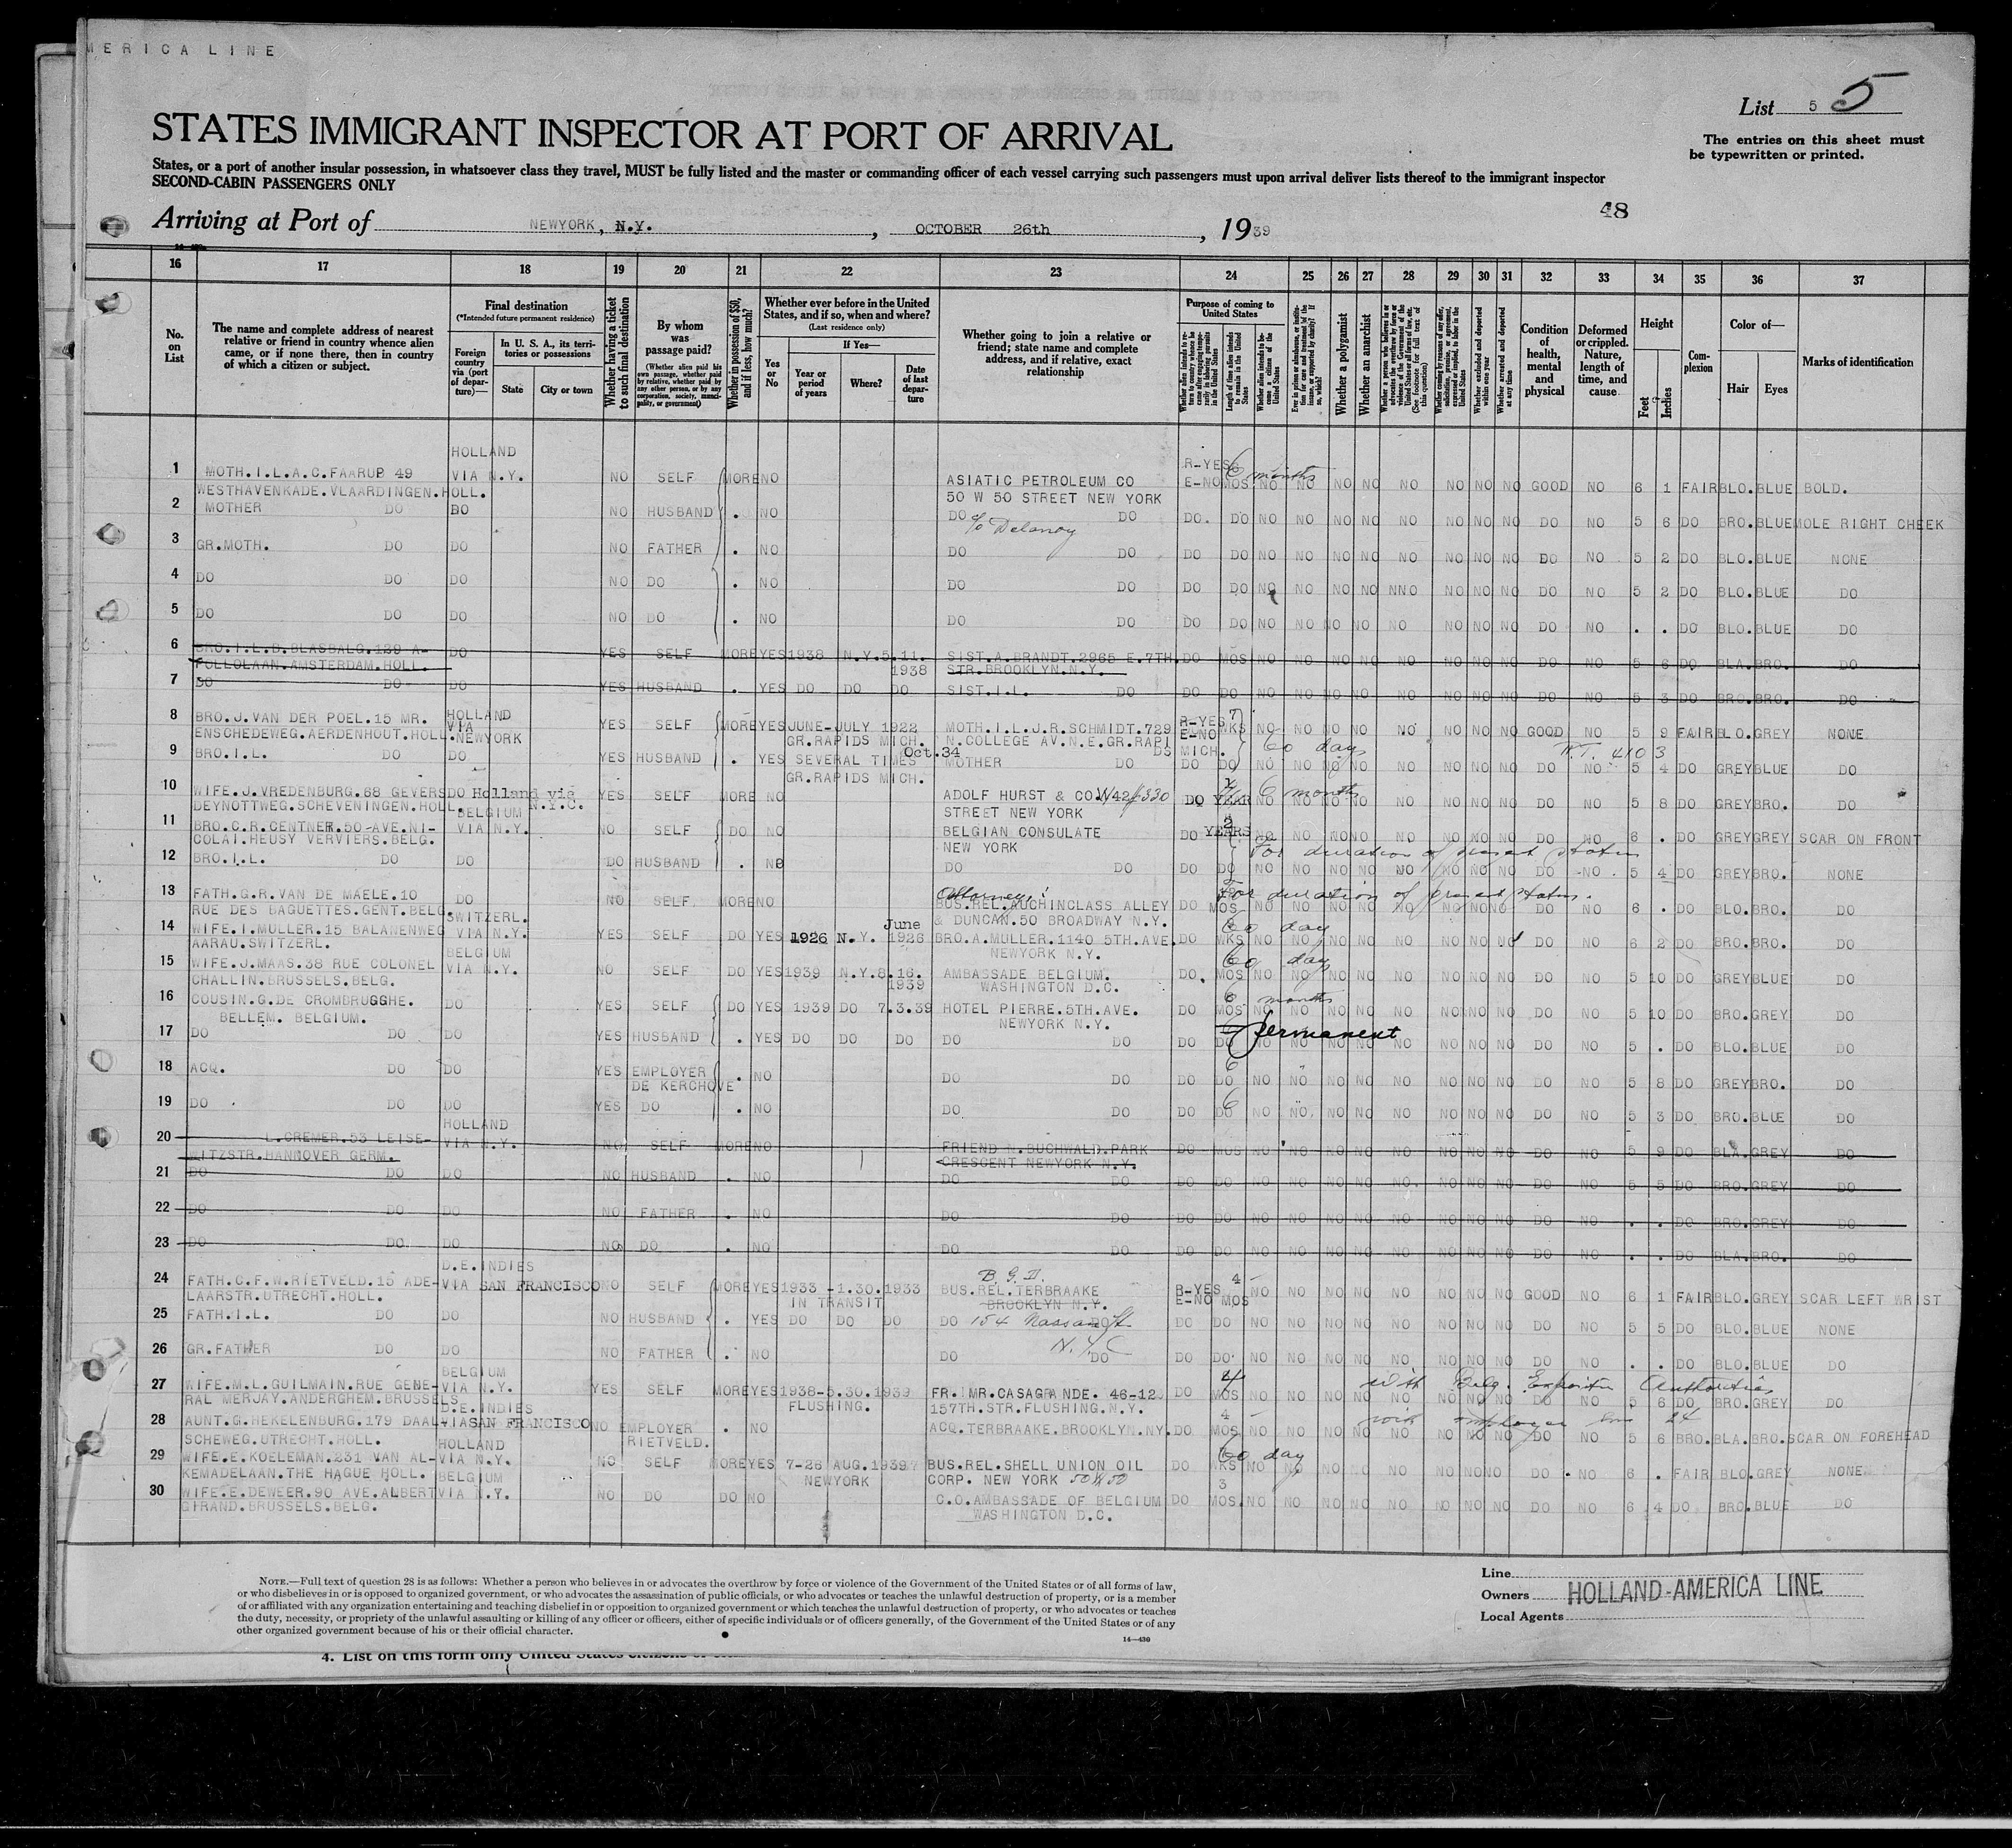 MERICA LINE
List 5 5
STATES IMMIGRANT INSPECTOR AT PORT OF ARRIVAL
The entries on this sheet must
be typewritten or printed.
States, or a port of another insular possession, in whatsoever class they travel, MUST be fully listed and the master or commanding officer of each vessel carrying such passengers must upon arrival deliver lists thereof to the immigrant inspector
SECOND-CABIN PASSENGERS ONLY
48
Arriving at Port of NEWYORK, N.Y. , OCTOBER 26th , 1939
16 17 18 19 20 21 22 23 24 25 26 27 28 29 30 31 32 33 34 35 36 37
No. on List
The name and complete address of nearest relative or friend in country whence alien came, or if none there, then in country of which a citizen or subject.
Final destination
(*Intended future permanent residence)
Foreign country via (port of departure)—
In U. S. A., its territories or possessions
State
City or town
Whether having a ticket to such final destination
By whom was passage paid?
(Whether alien paid his own passage, whether paid by relative, whether paid by any other person, or by any corporation, society, municipality, or government)
Whether in possession of $50, and if less, how much?
Whether ever before in the United States, and if so, when and where?
(Last residence only)
Yes or No
If Yes—
Year or period of years
Where?
Date of last departure
Whether going to join a relative or friend; state name and complete address, and if relative, exact relationship
Purpose of coming to United States
Whether a polygamist
Whether an anarchist
Condition of health, mental and physical
Deformed or crippled. Nature, length of time, and cause
Height
Feet
Inches
Complexion
Color of—
Hair
Eyes
Marks of identification
HOLLAND
1 MOTH.I.L.A.C.FAARUP 49 VIA N.Y. NO SELF MORE NO ASIATIC PETROLEUM CO R-YES 6 months E-NO MOS NO NO NO NO NO NO NO NO GOOD NO 6 1 FAIR BLO. BLUE BOLD.
WESTHAVENKADE.VLAARDINGEN.HOLL. 50 W 50 STREET NEW YORK
2 MOTHER DO DO NO HUSBAND . NO DO c/o Delanoy DO DO. DO NO NO NO NO NO NO NO NO DO NO 5 6 DO BRO. BLUE MOLE RIGHT CHEEK
3 GR.MOTH. DO DO NO FATHER . NO DO DO DO DO NO NO NO NO NO NO NO NO DO NO 5 2 DO BLO. BLUE NONE
4 DO DO DO NO DO . NO DO DO DO DO NO NO NO NO NNO NO NO NO DO NO 5 2 DO BLO. BLUE DO
5 DO DO DO NO DO . NO DO DO DO DO NO NO NO NO NO NO NO NO DO NO . . DO BLO. BLUE DO
6 BRO.I.L.B.BLASBALG.129 A- DO YES SELF MORE YES 1938 N.Y. 5.11. SIST.A.BRANDT.2965 E.7TH. DO MOS NO NO NO NO NO NO NO NO DO NO 5 6 DO BLA. BRO. DO
POLLOLAAN.AMSTERDAM.HOLL. 1938 STR.BROOKLYN.N.Y.
7 DO DO DO YES HUSBAND . YES DO DO DO SIST.I.L. DO DO DO NO NO NO NO NO NO NO NO DO NO 5 3 DO BRO. BRO. DO
8 BRO.J.VAN DER POEL.15 MR. HOLLAND VIA YES SELF MORE YES JUNE-JULY 1922 MOTH.I.L.J.R.SCHMIDT.729 R-YES 7 E-NO WKS NO NO NO NO NO NO NO NO GOOD NO 5 9 FAIR BLO. GREY NONE
ENSCHEDEWEG.AERDENHOUT.HOLL. NEWYORK GR.RAPIDS MICH. N.COLLEGE AV.N.E.GR.RAPI 60 days
9 BRO.I.L. DO DO YES HUSBAND . YES SEVERAL TIMES Oct.34 DS MICH. MOTHER DO DO DO NO NO NO NO NO NO NO NO DO NO 5 4 DO GREY BLUE DO
GR.RAPIDS MICH.
10 WIFE.J.VREDENBURG.68 GEVERS DO Holland via N.Y.C. YES SELF MORE NO ADOLF HURST & CO. W42 #330 DO YEAR 6 months NO NO NO NO NO NO NO DO NO 5 8 DO GREY BRO. DO
DEYNOTTWEG.SCHEVENINGEN.HOLL. BELGIUM STREET NEW YORK
11 BRO.C.R.CENTNER.50-AVE.NI- VIA N.Y. NO SELF DO NO BELGIAN CONSULATE DO 2 YEARS NO NO NO NO NO NO NO NO DO NO 6 . DO GREY GREY SCAR ON FRONT
COLAI.HEUSY VERVIERS.BELG. NEW YORK For duration of present status
12 BRO.I.L. DO DO DO HUSBAND . NO DO DO DO DO NO NO NO NO NO NO NO NO DO NO 5 4 DO GREY BRO. NONE
13 FATH.G.R.VAN DE MAELE.10 DO NO SELF MORE NO Attorneys! BUS.REL.AUCHINCLASS ALLEY DO MOS For duration of present status. NO NO NO NO NO NO NO DO NO 6 . DO BLO. BRO. DO
RUE DES BAGUETTES.GENT.BELG. SWITZERL. & DUNCAN.50 BROADWAY N.Y.
14 WIFE.I.MULLER.15 BALANENWEG VIA N.Y. YES SELF DO YES 1926 N.Y. June 1926 BRO.A.MULLER.1140 5TH.AVE. DO 60 day WKS NO NO NO NO NO NO NO NO DO NO 6 2 DO BRO. BRO. DO
AARAU.SWITZERL. BELGIUM NEWYORK N.Y.
15 WIFE.J.MAAS.38 RUE COLONEL VIA N.Y. NO SELF DO YES 1939 N.Y. 8.16. 1939 AMBASSADE BELGIUM. DO. 60 day MOS NO NO NO NO NO NO NO NO DO NO 5 10 DO GREY BLUE DO
CHALLIN.BRUSSELS.BELG. WASHINGTON D.C.
16 COUSIN.G.DE CROMBRUGGHE. DO YES SELF DO YES 1939 DO 7.3.39 HOTEL PIERRE.5TH.AVE. DO 6 months MOS NO NO NO NO NO NO NO NO DO NO 5 10 DO BRO. GREY DO
BELLEM. BELGIUM. NEWYORK N.Y.
17 DO DO DO YES HUSBAND . YES DO DO DO DO DO DO DO permanent NO NO NO NO NO NO NO NO DO NO 5 . DO BLO. BLUE DO
18 ACQ. DO DO YES EMPLOYER . NO DO DO DO 6 DO NO NO NO NO NO NO NO NO DO NO 5 8 DO GREY BRO. DO
DE KERCHOVE
19 DO DO DO YES DO . NO DO DO DO 6 DO NO NO NO NO NO NO NO NO DO NO 5 3 DO BRO. BLUE DO
HOLLAND
20 L.CREMER.53 LEISE- VIA N.Y. NO SELF MORE NO FRIEND N.BUCHWALD.PARK DO MOS NO NO NO NO NO NO NO NO DO NO 5 9 DO BLA. GREY DO
WITZSTR.HANNOVER GERM. CRESCENT NEWYORK N.Y.
21 DO DO DO NO HUSBAND . NO DO DO DO DO NO NO NO NO NO NO NO NO DO NO 5 5 DO BRO. GREY DO
22 DO DO DO NO FATHER . NO DO DO DO DO NO NO NO NO NO NO NO NO DO NO . . DO BRO. GREY DO
23 DO DO DO NO DO . NO DO DO DO DO NO NO NO NO NO NO NO NO DO NO . . DO BLA. BRO. DO
D.E.INDIES
24 FATH.C.F.W.RIETVELD.15 ADE- VIA SAN FRANCISCO NO SELF MORE YES 1933 -1.30.1933 BUS.REL.TERBRAAKE R-YES 4 E-NO MOS NO NO NO NO NO NO NO NO GOOD NO 6 1 FAIR BLO. GREY SCAR LEFT WRIST
LAARSTR.UTRECHT.HOLL. IN TRANSIT BROOKLYN N.Y.
25 FATH.I.L. DO DO NO HUSBAND . YES DO DO DO DO 154 Nassau St. DO DO DO NO NO NO NO NO NO NO NO DO NO 5 5 DO BLO. BLUE NONE
N.Y.C
26 GR.FATHER DO DO NO FATHER . NO DO DO DO DO NO NO NO NO NO NO NO NO DO NO . . DO BLO. BLUE DO
BELGIUM
27 WIFE.M.L.GUILMAIN.RUE GENE- VIA N.Y. YES SELF MORE YES 1938-5.30.1939 FR.MR.CASAGRANDE. 46-12 DO 4 MOS with Belg. Exposition Authorities NO NO NO NO NO NO NO NO DO NO 5 6 DO BRO. GREY DO
RAL MERJAY.ANDERGHEM.BRUSSELS. D.E.INDIES FLUSHING. 157TH.STR.FLUSHING.N.Y.
28 AUNT.G.HEKELENBURG.179 DAAL- VIA SAN FRANCISCO NO EMPLOYER . NO ACQ.TERBRAAKE.BROOKLYN.NY. DO 4 MOS with employer line 24 NO NO NO NO NO NO NO NO DO NO 5 6 BRO. BLA. BRO. SCAR ON FOREHEAD
SCHEWEG.UTRECHT.HOLL. HOLLAND RIETVELD.
29 WIFE.E.KOELEMAN.231 VAN AL- VIA N.Y. NO SELF MORE YES 7-26 AUG.1939 BUS.REL.SHELL UNION OIL DO 60 day WKS NO NO NO NO NO NO NO NO DO NO 6 . FAIR BLO. GREY NONE
KEMADELAAN.THE HAGUE HOLL. BELGIUM NEWYORK CORP. NEW YORK 50 W 50
30 WIFE.E.DEWEER.90 AVE.ALBERT VIA N.Y. NO DO DO NO C.O.AMBASSADE OF BELGIUM DO 3 MOS. NO NO NO NO NO NO NO NO DO NO 6 4 DO BRO. BLUE DO
GIRAND.BRUSSELS.BELG. WASHINGTON D.C.
NOTE.—Full text of question 28 is as follows: Whether a person who believes in or advocates the overthrow by force or violence of the Government of the United States or of all forms of law,
or who disbelieves in or is opposed to organized government, or who advocates the assassination of public officials, or who advocates or teaches the unlawful destruction of property, or is a member
of or affiliated with any organization entertaining and teaching disbelief in or opposition to organized government or which teaches the unlawful destruction of property, or who advocates or teaches
the duty, necessity, or propriety of the unlawful assaulting or killing of any officer or officers, either of specific individuals or of officers generally, of the Government of the United States or of any
other organized government because of his or their official character.
14—430
Line
Owners HOLLAND-AMERICA LINE
Local Agents
4. List on this form only United States citizens